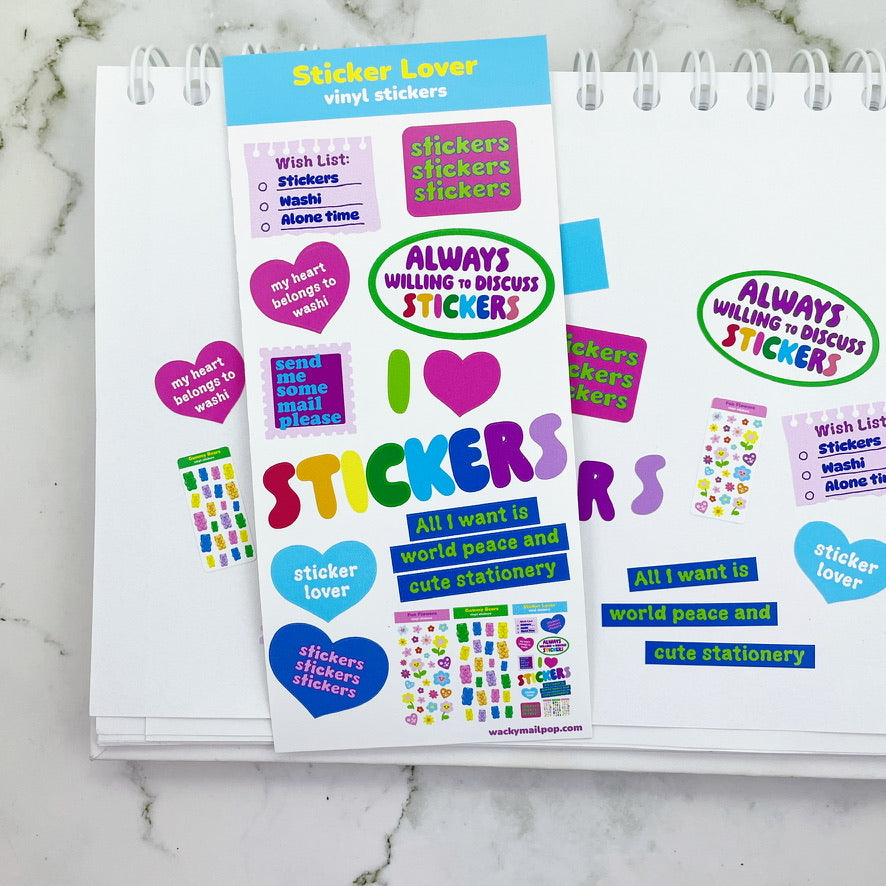 Sticker Lover
vinyl stickers
Wish List:
Stickers
Washi
Alone time
stickers
stickers
stickers
my heart
belongs to
washi
ALWAYS
WILLING TO DISCUSS
STICKERS
send
me
some
mail
please
I
STICKERS
All I want is
world peace and
cute stationery
sticker
lover
stickers
stickers
stickers
Fun Flowers
vinyl stickers
Gummy Bears
vinyl stickers
Sticker Lover
vinyl stickers
ALWAYS
WILLING TO DISCUSS
STICKERS
I
STICKERS
wackymailpop.com
my heart
belongs to
washi
Gummy Bears
vinyl stickers
ickers
ckers
ckers
R S
ALWAYS
WILLING TO DISCUSS
STICKERS
Fun Flowers
vinyl stickers
Wish List
Stickers
Washi
Alone tim
All I want is
world peace and
cute stationery
sticker
lover